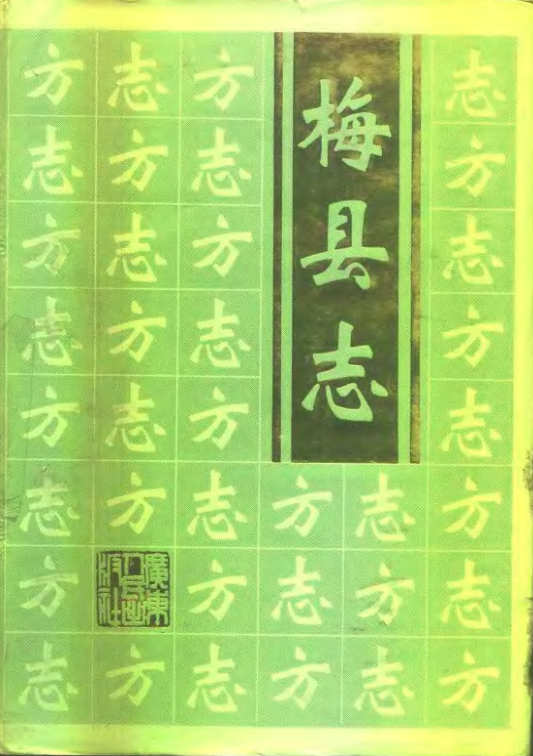 梅县志
方志方志
志方志方
方志方志
志方志方
方志方志
志方志方志方
方方志方志
志方志方志方
廣東人民出版社